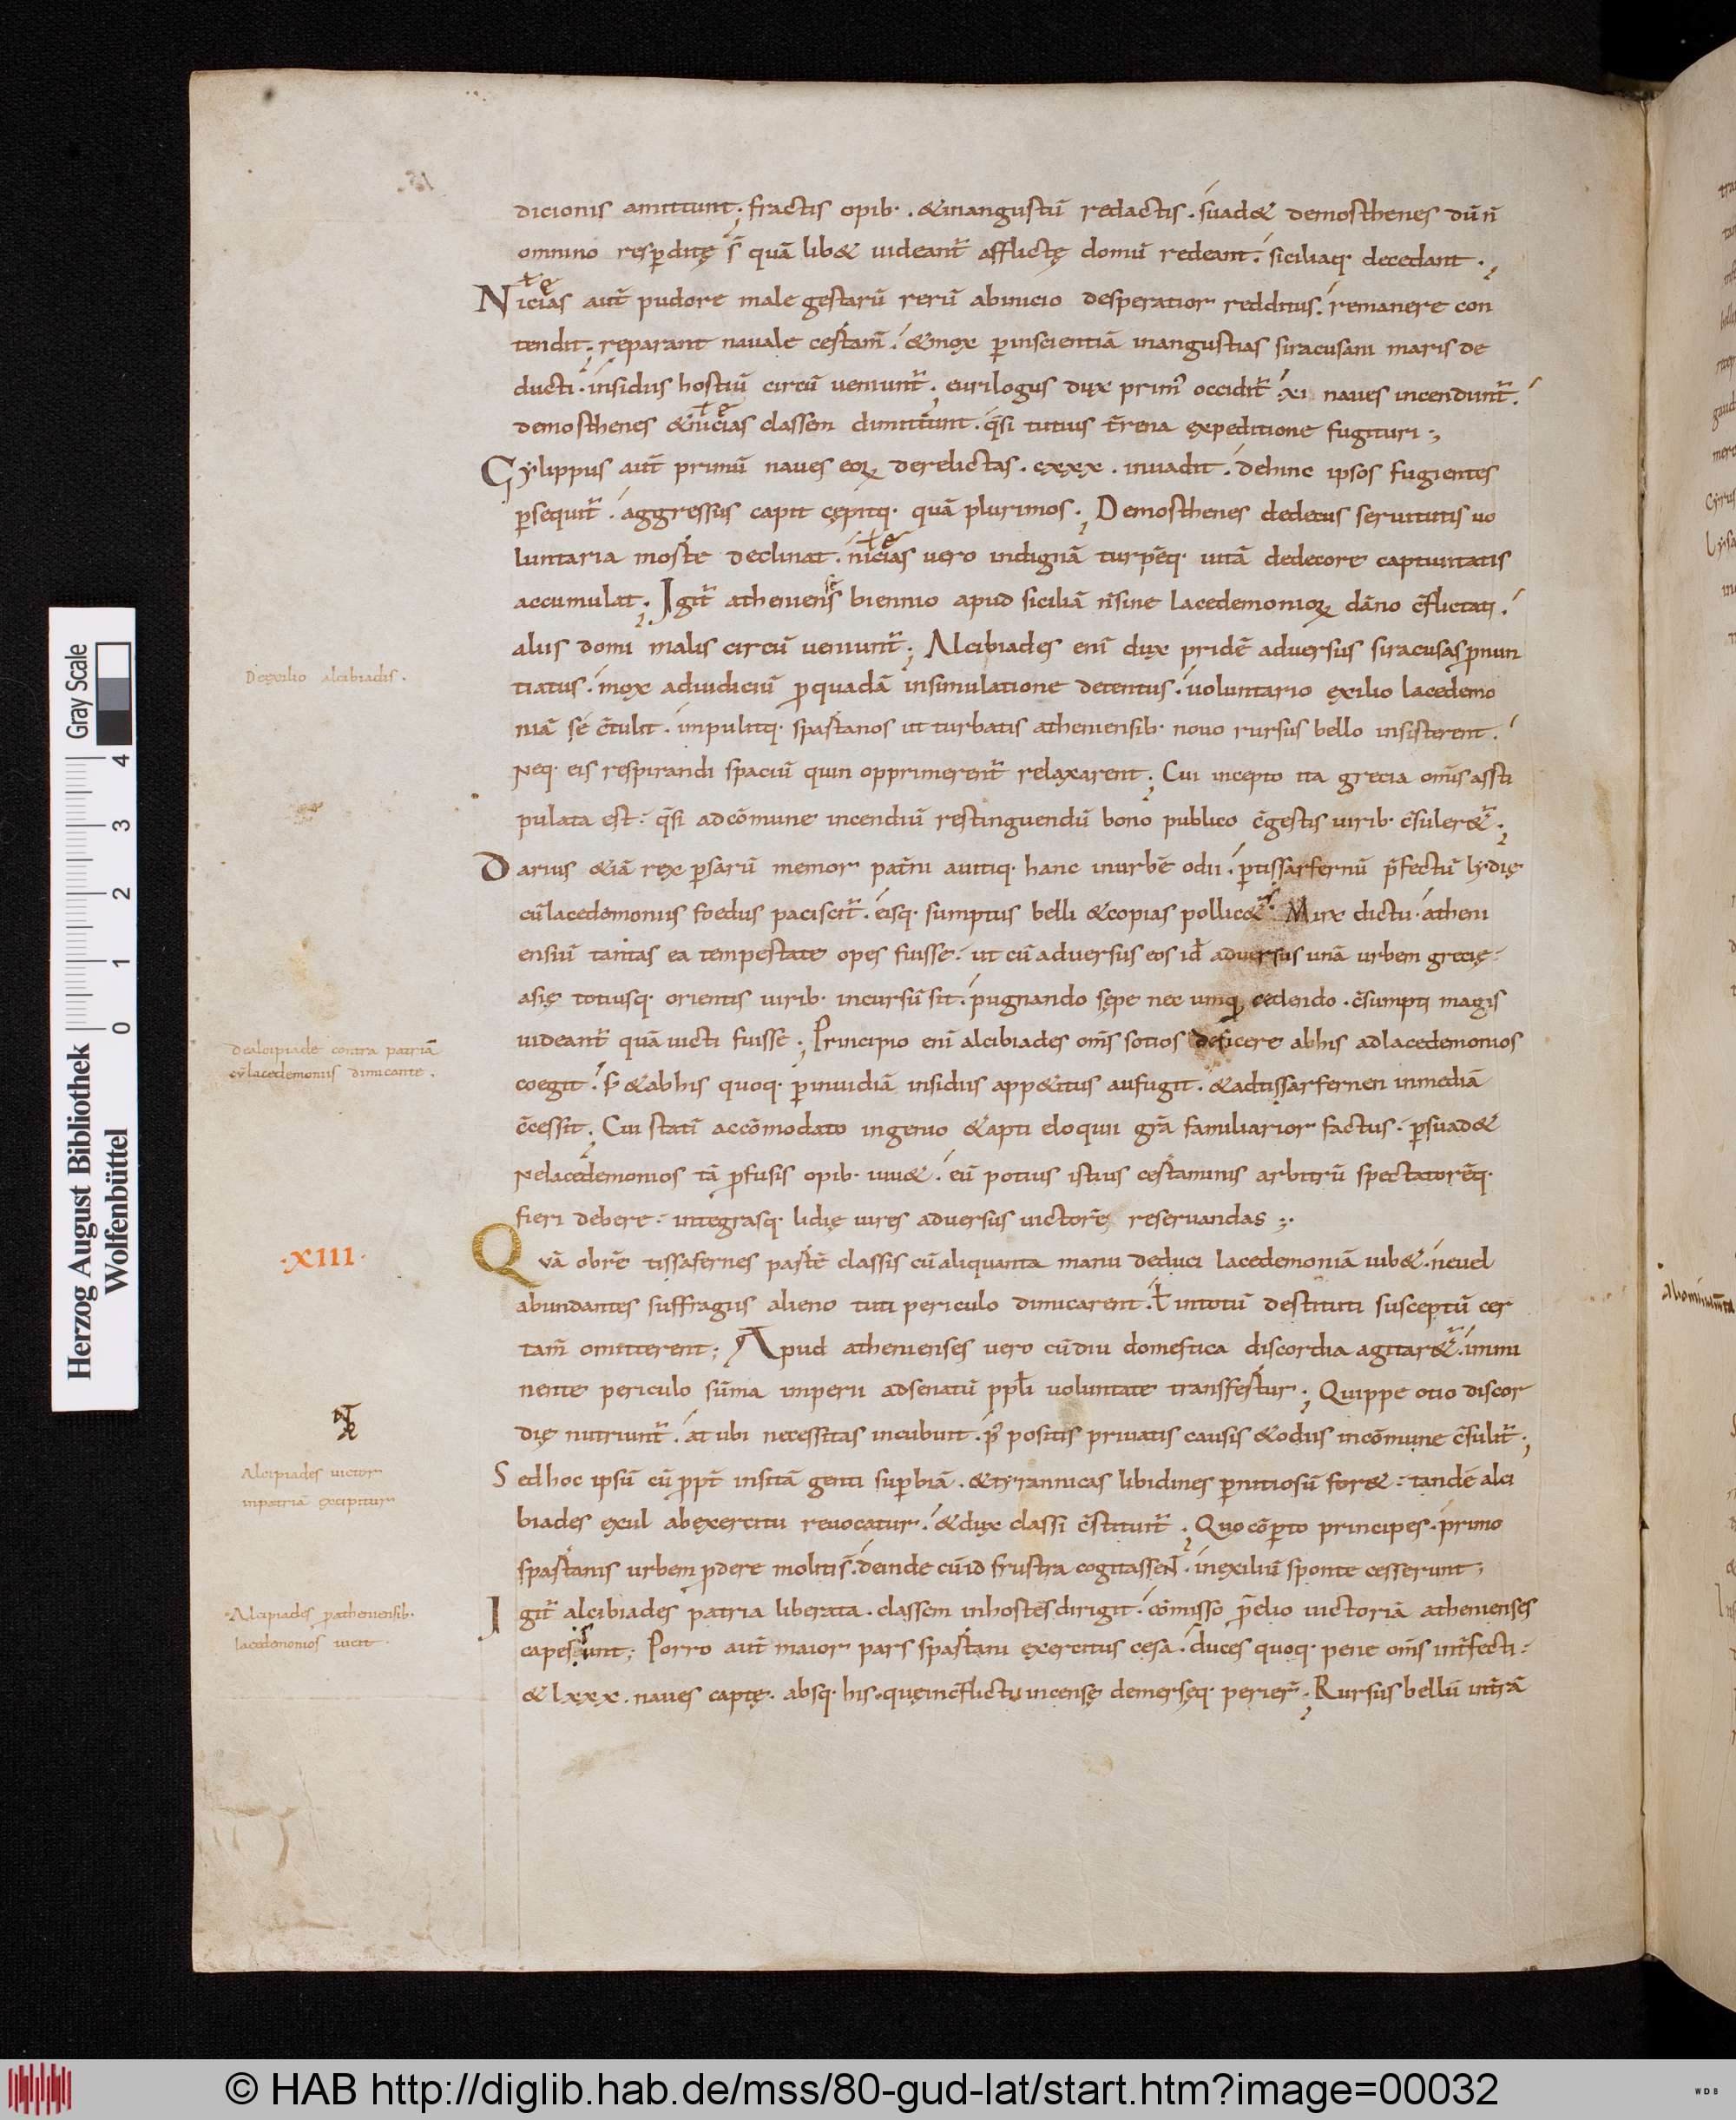 dicionis amittunt; fractis opib· . &inangustiū redactis . suad& demosthenes dū n̄
omnino resp̱ditę s̄ quā lib& uideant̄ afflictę domū redeant . siciliaq· decedant .;
Nicias aut̄ pudore male gestarū rerū abinicio desperatior redditus . remanere con
tendit ; reparant nauale certam̄ . &mox ꝑinscientiā inangustias siracusani maris de
ducti . insidiis hostiū circū ueniunt̄ ; eurilogus dux prim᾿ occidit̄ . xi naues incendunt̄ .
demosthenes &nicias classem dimittunt . q̄si tutius t̄rena expeditione fugituri ;
Gylippus aut̄ primū naues eoꝝ derelictas . cxxx . inuadit . dehinc ipsos fugientes
ꝑsequit̄ . aggressus capit cępitq· quā plurimos ; Demosthenes dedecus seruitutis uo
luntaria morte declinat . nicias uero indignā turpēq· uitā dedecore captiuitatis
accumulat ; Igit̄ atheniens̄ biennio apud siciliā n̄sine lacedemonioꝝ dāno c̄flictati .
aliis domi malis circū ueniunt̄ ; Alcibiades enī dux pridē aduersus siracusas ꝓnun
tiatus . mox adiudiciū ꝑquadā insimulatione detentus . uoluntario exilio lacedemo
niā sé c̄tulit . impulitq· spartanos ut turbatis atheniensib· nouo rursus bello insisterent .
Neq· eis respirandi spaciū quin opprimerent̄ relaxarent ; Cui incepto ita grecia om̄is assti
pulata est . q̄si adcōmune incendiū restinguendū bono publico c̄gestis uirib· c̄suler&̄ ;
Darius &iā rex ꝑsarū memor pat̄ni auitiq· hanc inurbē odii . ꝑtissarfernū p̄fectū lydię
cūlacedemoniis foedus paciscit̄ . eisq· sumptus belli &copias pollic&̄ . Mirx dictu . atheni
ensiū tantas ea tempestate opes fuisse . ut cū aduersus eos id̄ aduersus unā urbem grecię .
asię totiusq· orientis uirib· incursū sit . pugnando sępe nec umꝗ cedendo . c̄sumpti magis
uideant̄ quā uicti fuisse ; Principio enī alcibiades om̄s sotios deficere abhis adlacedemonios
coegit . s̄ &abhis quoq· ꝑinuidiā insidiis app&itus aufugit . &adtissarfernen inmediā
c̄cessit ; Cui statī accōmodato ingenio &apti eloquii grā familiarior factus . ꝑsuad&
Nelacedemonios tā ꝓfusis opib· iuu& . eū potius istius certaminis arbitrū spectatorēq·
fieri debere . integrasq· lidię uires aduersus uictorē reseruandas ;
·XIII·
Quā obrē tissafernes partē classis cūaliquanta manu deduci lacedemoniā iub& . neuel
abundantes suffragiis alieno tuti periculo dimicarent . ł intotū destituti susceptū cer
tam̄ omitterent ; Apud athenienses uero cūdiu domestica discordia agitar&̄ . immi
nente periculo sūma imperii adsenatū ppłi uoluntate transfertur ; Quippe otio discor
dię nutriunt̄ . at ubi necessitas incubuit . p᾿ positis priuatis causis &odiis incōmune c̄sulit̄ ;
Sedhoc ipsū cū ꝓpt̄ insitā genti suꝑbiā . &tyrannicas libidines ꝑnitiosū for& . tandē alci
biades exul abexercitu reuocatur . &dux classi c̄stituit̄ ; Quocōꝑto principes . primo
spartanis urbem ꝓdere molitis̄ . deinde cūid frustra cogitassent . inexiliū sponte cesserunt ;
Igit̄ alcibiades patria liberata . classem inhostes dirigit . cōmisso p̄elio uictoriā athenienses
capessunt ; Porro aut̄ maior pars spartani exercitus cesa . duces quoq· pene om̄s int̄fecti .
& lxxx . naues captę . absq· his . quęinc̄flictu incensę demersęq· perier̄ ; Rursus bellū int̄rā
Deexilio alcibiadis .
dealcipiade contra patriā
cūlacedemoniis dimicante .
Alcipiades uictor
inpatriā excipitur
Alcipiades ꝓatheniensib·
lacedemonios uicit .
Herzog August Bibliothek
Wolfenbüttel
Gray Scale
0 1 2 3 4
© HAB http://diglib.hab.de/mss/80-gud-lat/start.htm?image=00032
WDB